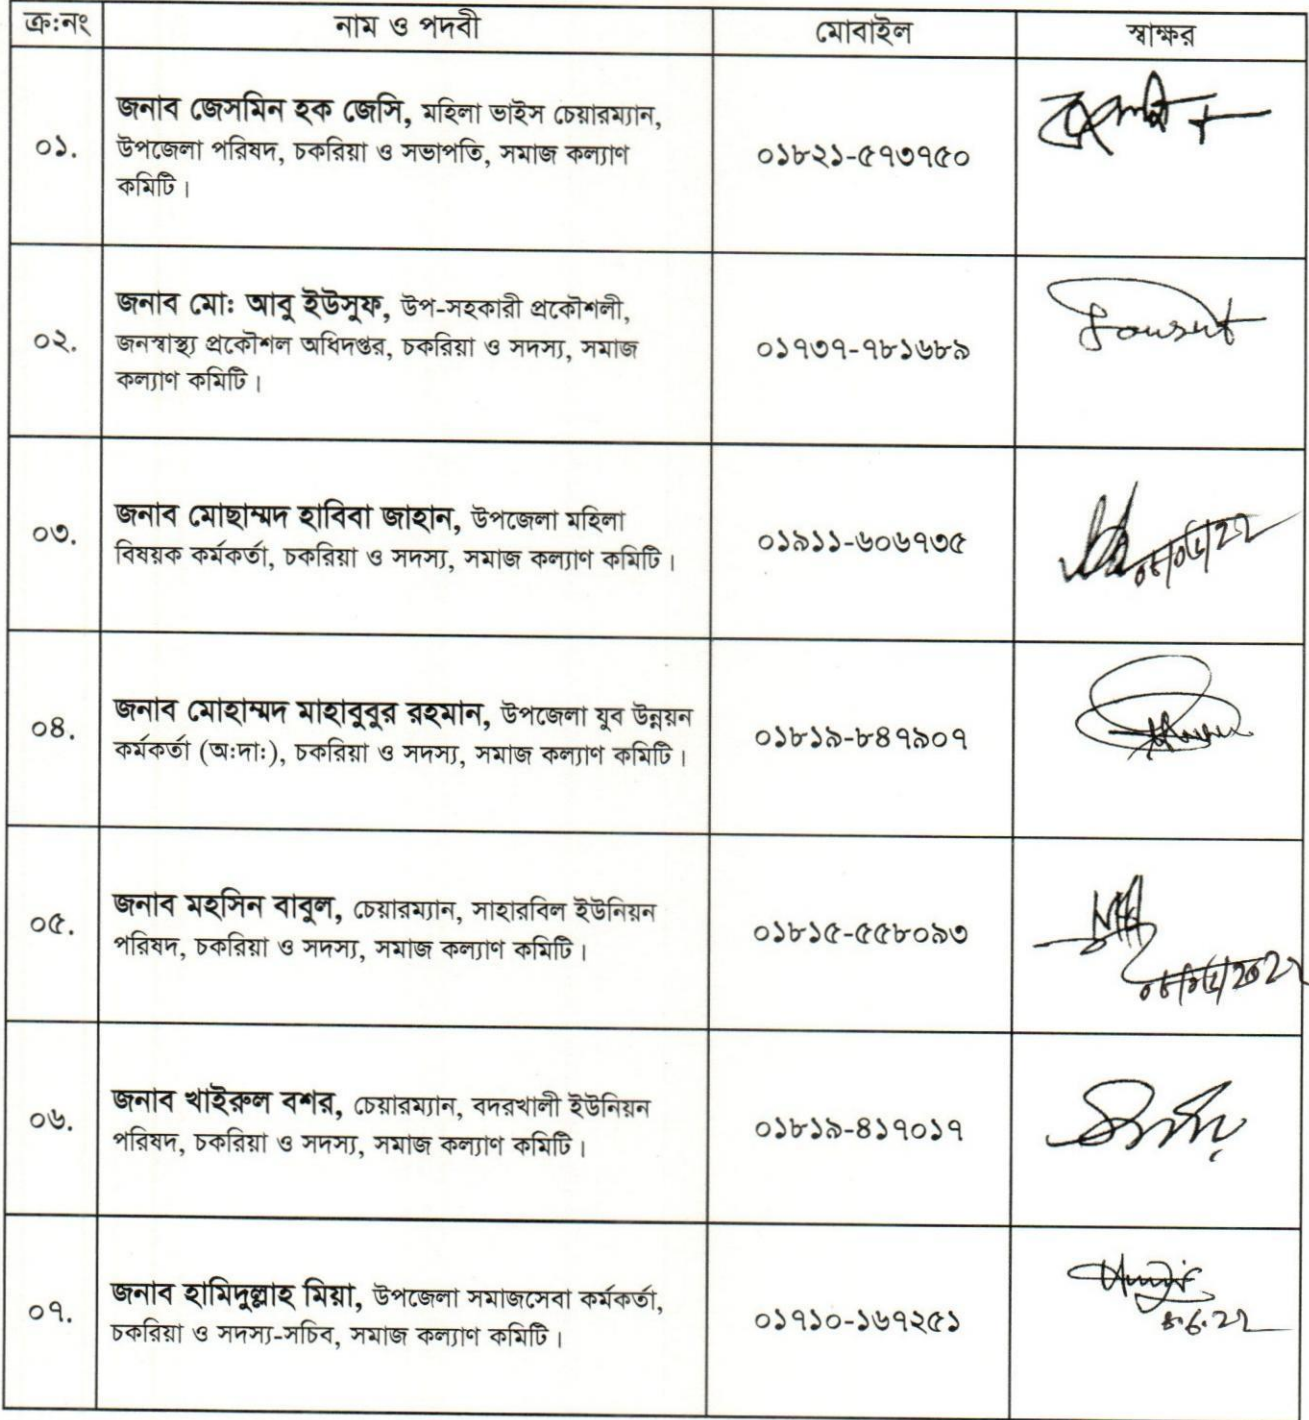 ক্র:নং নাম ও পদবী মোবাইল স্বাক্ষর
০১. জনাব জেসমিন হক জেসি, মহিলা ভাইস চেয়ারম্যান,
উপজেলা পরিষদ, চকরিয়া ও সভাপতি, সমাজ কল্যাণ
কমিটি।
০১৮২১-৫৭৩৭৫০
০২. জনাব মো: আবু ইউসুফ, উপ-সহকারী প্রকৌশলী,
জনস্বাস্থ্য প্রকৌশল অধিদপ্তর, চকরিয়া ও সদস্য, সমাজ
কল্যাণ কমিটি।
০১৭৩৭-৭৮১৬৮৯
০৩. জনাব মোছাম্মদ হাবিবা জাহান, উপজেলা মহিলা
বিষয়ক কর্মকর্তা, চকরিয়া ও সদস্য, সমাজ কল্যাণ কমিটি।
০১৯১১-৬০৬৭৩৫
০৪. জনাব মোহাম্মদ মাহাবুবুর রহমান, উপজেলা যুব উন্নয়ন
কর্মকর্তা (অ:দা:), চকরিয়া ও সদস্য, সমাজ কল্যাণ কমিটি।
০১৮১৯-৮৪৭৯০৭
০৫. জনাব মহসিন বাবুল, চেয়ারম্যান, সাহারবিল ইউনিয়ন
পরিষদ, চকরিয়া ও সদস্য, সমাজ কল্যাণ কমিটি।
০১৮১৫-৫৫৮০৯৩
০৬. জনাব খাইরুল বশর, চেয়ারম্যান, বদরখালী ইউনিয়ন
পরিষদ, চকরিয়া ও সদস্য, সমাজ কল্যাণ কমিটি।
০১৮১৯-৪১৭০১৭
০৭. জনাব হামিদুল্লাহ মিয়া, উপজেলা সমাজসেবা কর্মকর্তা,
চকরিয়া ও সদস্য-সচিব, সমাজ কল্যাণ কমিটি।
০১৭১০-১৬৭২৫১